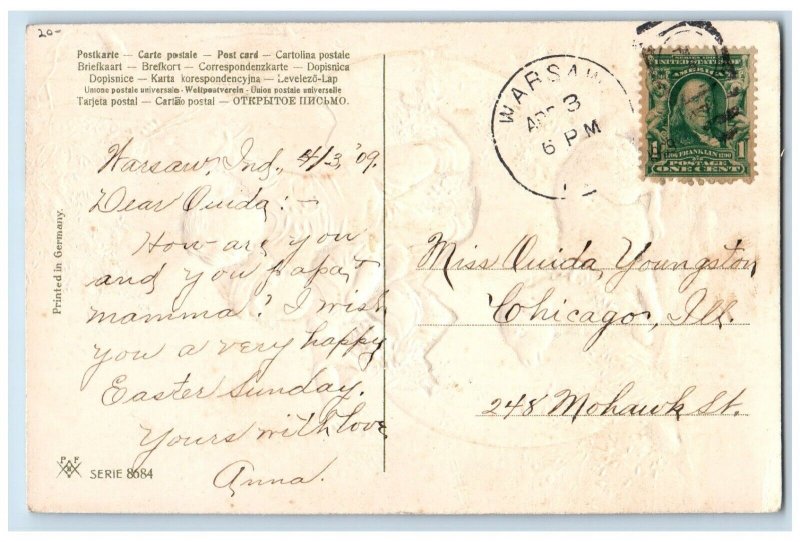 20-
Postkarte — Carte postale — Post card — Cartolina postale
Briefkaart — Brefkort — Correspondenzkarte — Dopisnica
Dopisnice — Karta korespondencyjna — Levelező-Lap
Unione postale universale - Weltpostverein - Union postale universelle
Tarjeta postal — Cartão postal — ОТКРЫТОЕ ПИСЬМО.
WARSAW
APR 3
6 PM
UNITED STATES OF
AMERICA
1706 FRANKLIN 1790
1 POSTAGE 1
ONE CENT
Warsaw, Ind., 4/3, '09.
Dear Ouida:-
How are you
and you papa +
mamma? I wish
you a very happy
Easter Sunday.
Yours with love
Anna.
Miss Ouida Youngston
Chicago, Ill.
248 Mohawk St.
Printed in Germany.
P F
B
SERIE 8684